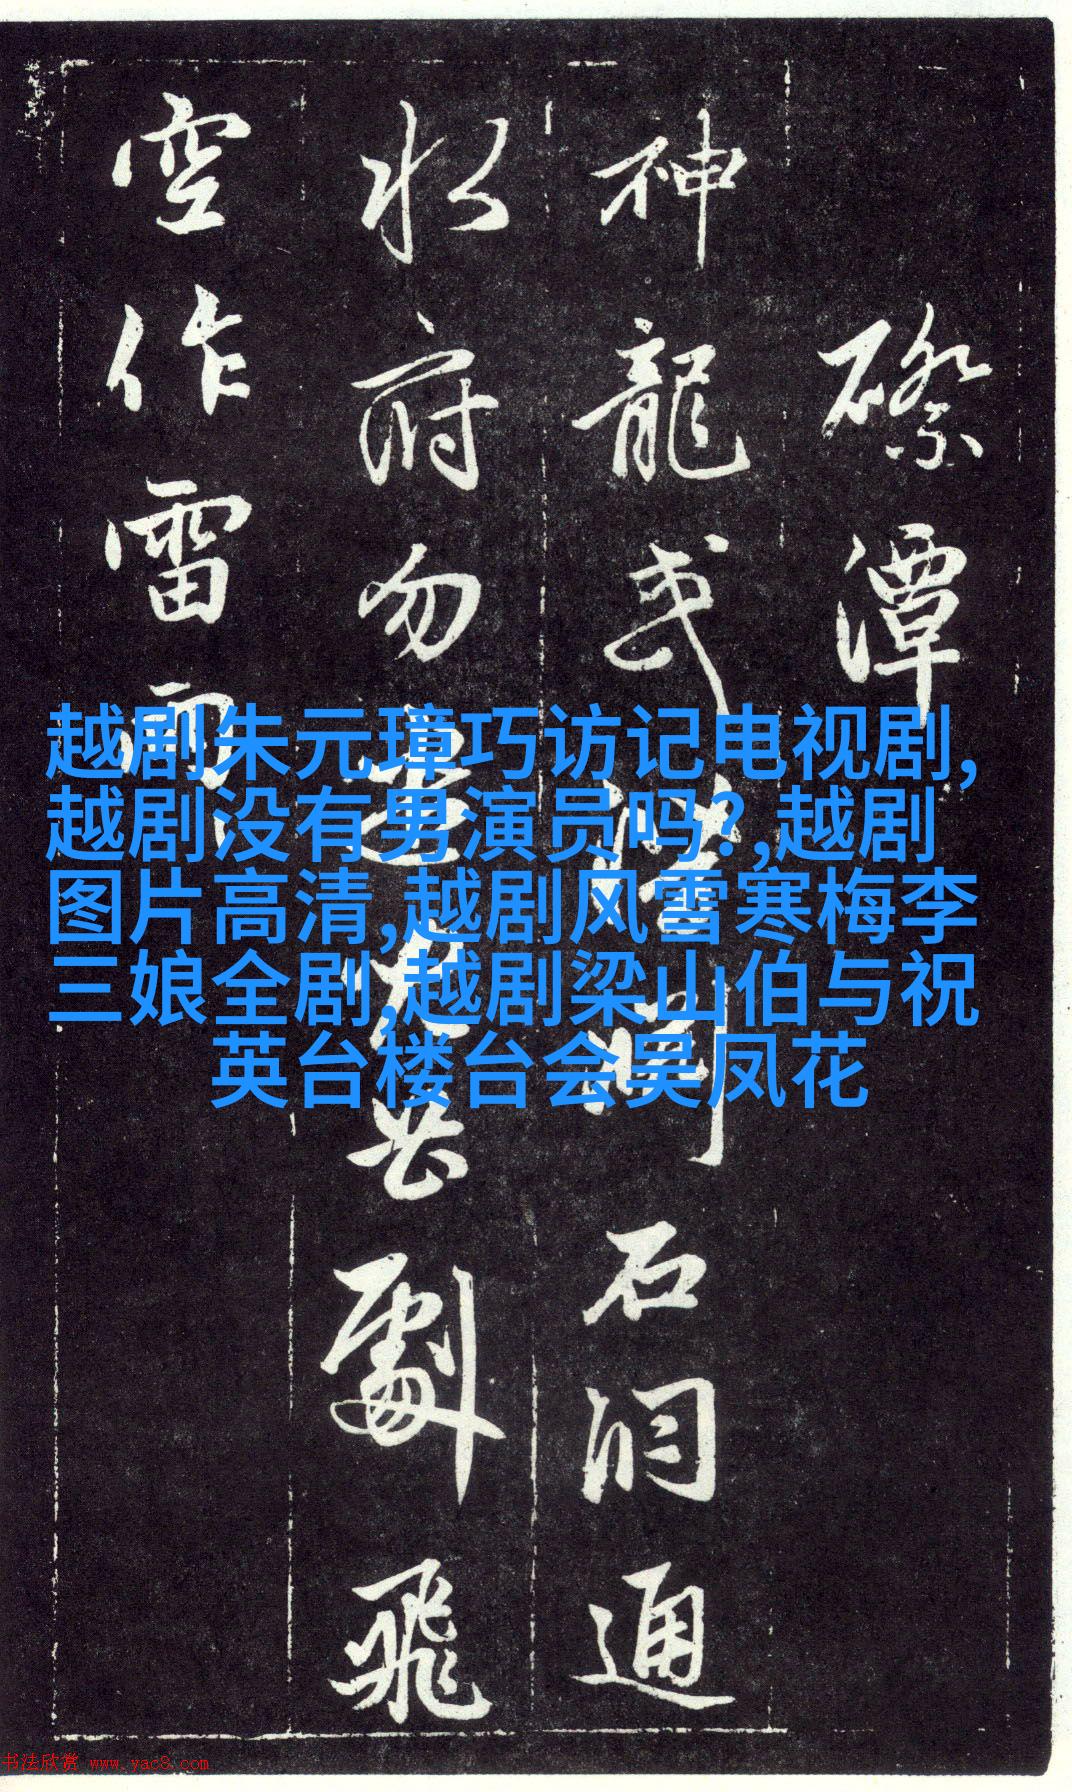 磜潭
神龍或潜洞石洞通
水府勿
劇飛
空作雷雨
越剧朱元璋巧访记电视剧,
越剧没有男演员吗?,越剧
图片高清,越剧风雪寒梅李
三娘全剧,越剧梁山伯与祝
英台楼台会吴凤花
书法欣赏 www.yac8.com